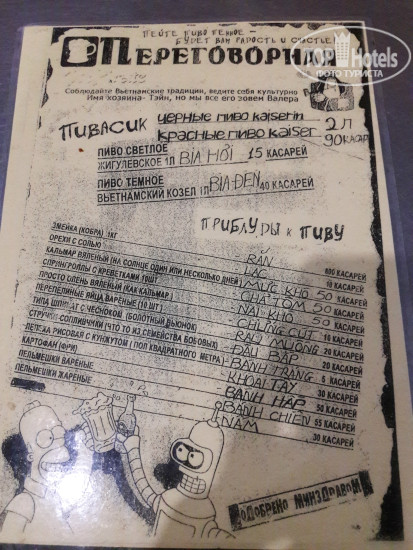 ПЕЙТЕ ПИВО ПЕННОЕ -
БУДЕТ ВАМ РАДОСТЬ И СЧАСТЬЕ!
ПЕРЕГОВОРНАЯ
TOP Hotels
ФОТО ТУРИСТА
Соблюдайте Вьетнамские традиции, ведите себя культурно
Имя хозяина- Тэйн, но мы все его зовем Валера
ПИВАСИК
ЧЕРНЫЕ ПИВО Kaiserin
КРАСНЫЕ ПИВО KAISER
2 Л
90 КАСАР
ПИВО СВЕТЛОЕ
ЖИГУЛЕВСКОЕ 1Л BIA HƠI 15 КАСАРЕЙ
ПИВО ТЕМНОЕ
ВЬЕТНАМСКИЙ КОЗЕЛ 1Л BIA ĐEN 40 КАСАРЕЙ
ПРИБЛУДЫ К ПИВУ
ЗМЕЙКА (КОБРА) 1КГ RẮN 800 КАСАРЕЙ
ОРЕХИ С СОЛЬЮ LẠC 10 КАСАРЕЙ
КАЛЬМАР ВЯЛЕНЫЙ (НА СОЛНЦЕ ОДИН ИЛИ НЕСКОЛЬКО ДНЕЙ) MỰC KHÔ 50 КАСАРЕЙ
СПРИНГРОЛЛЫ С КРЕВЕТКАМИ 10ШТ CHẢ TÔM 50 КАСАРЕЙ
ПРОСТО ОЛЕНЬ ВЯЛЕНЫЙ (КАК КАЛЬМАР) NAI KHÔ 50 КАСАРЕЙ
ПЕРЕПЕЛИНЫЕ ЯЙЦА ВАРЕНЫЕ (10 ШТ) CHỨNG CÚT 10 КАСАРЕЙ
ТИПА ШПИНАТ С ЧЕСНОКОМ (БОЛОТНЫЙ ВЬЮНОК) RAU MUỐNG 20 КАСАРЕЙ
СТРУЧКИ-СОПЛИВЧИКИ (ЧТО ТО ИЗ СЕМЕЙСТВА БОБОВЫХ) ĐẬU BẮP 20 КАСАРЕЙ
ЛЕПЕХА РИСОВАЯ С КУНЖУТОМ (ПОЛ КВАДРАТНОГО МЕТРА) BÁNH TRÁNG 5 КАСАРЕЙ
КАРТОФАН (ФРИ) KHOAI TÂY 30 КАСАРЕЙ
ПЕЛЬМЕШКИ ВАРЕНЫЕ BÁNH HẤP 50 КАСАРЕЙ
ПЕЛЬМЕШКИ ЖАРЕНЫЕ BÁNH CHIÊN 55 КАСАРЕЙ
NẤM 30 КАСАРЕЙ
ОДОБРЕНО МИНЗДРАВОМ